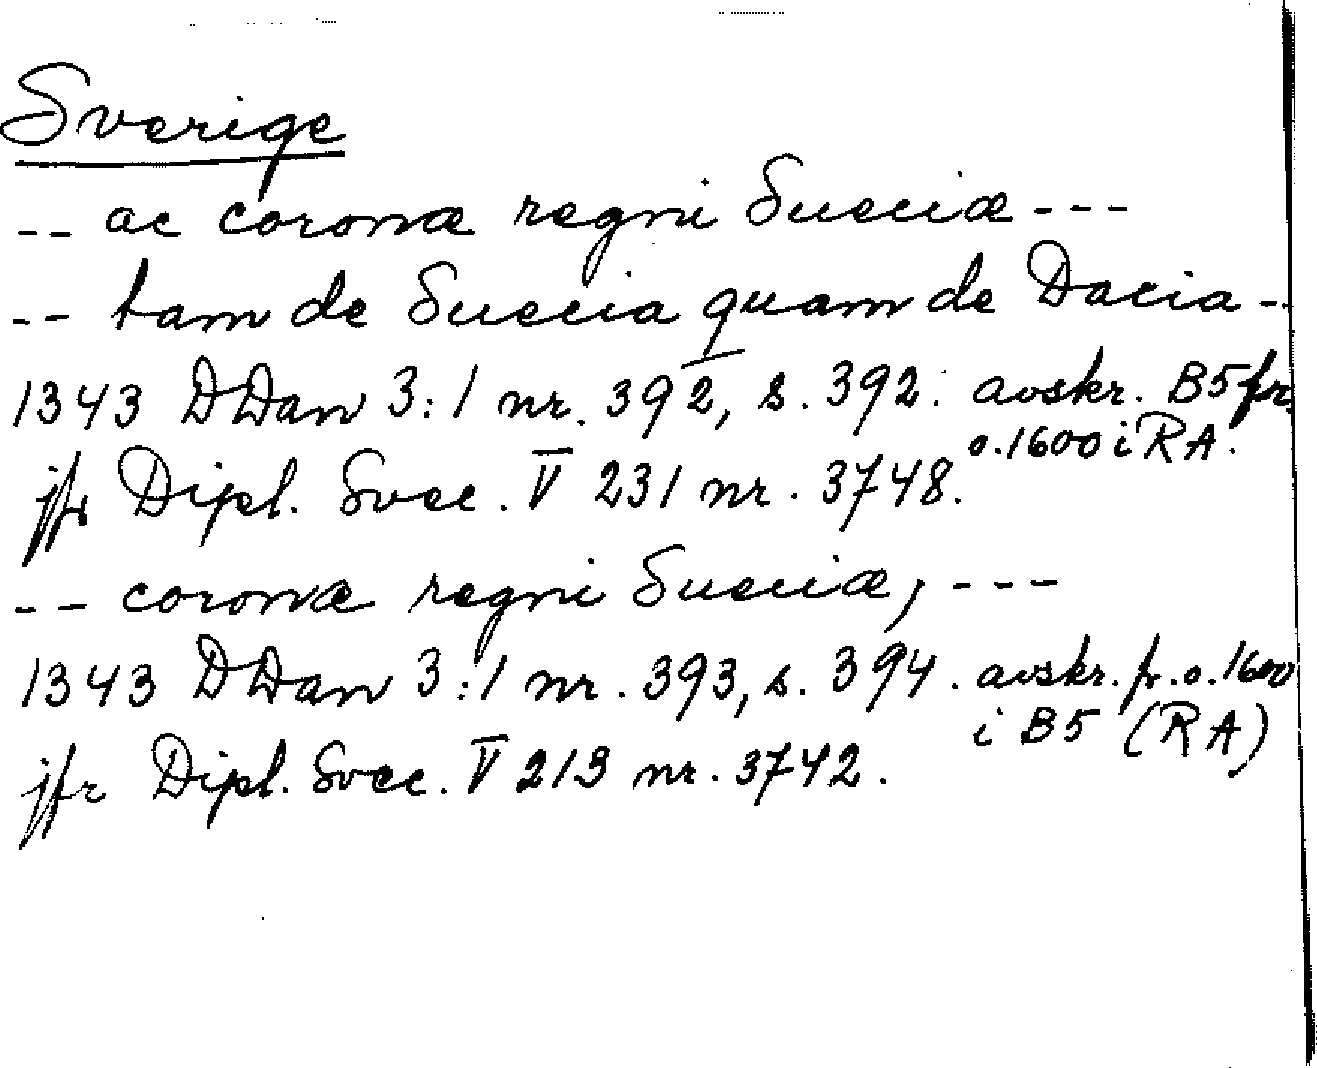 Sverige
-- ac coronæ regni Sueciæ ---
-- tam de Suecia quam de Dacia --
1343 DDan 3:1 nr. 392, s. 392. avskr. B5 fr.
o. 1600 i RA.
jfr Dipl. Svec. V 231 nr. 3748.
-- coronæ regni Sueciæ, ---
1343 DDan 3:1 nr. 393, s. 394. avskr. fr. o. 1600
i B5 (RA)
jfr Dipl. Svec. V 213 nr. 3742.